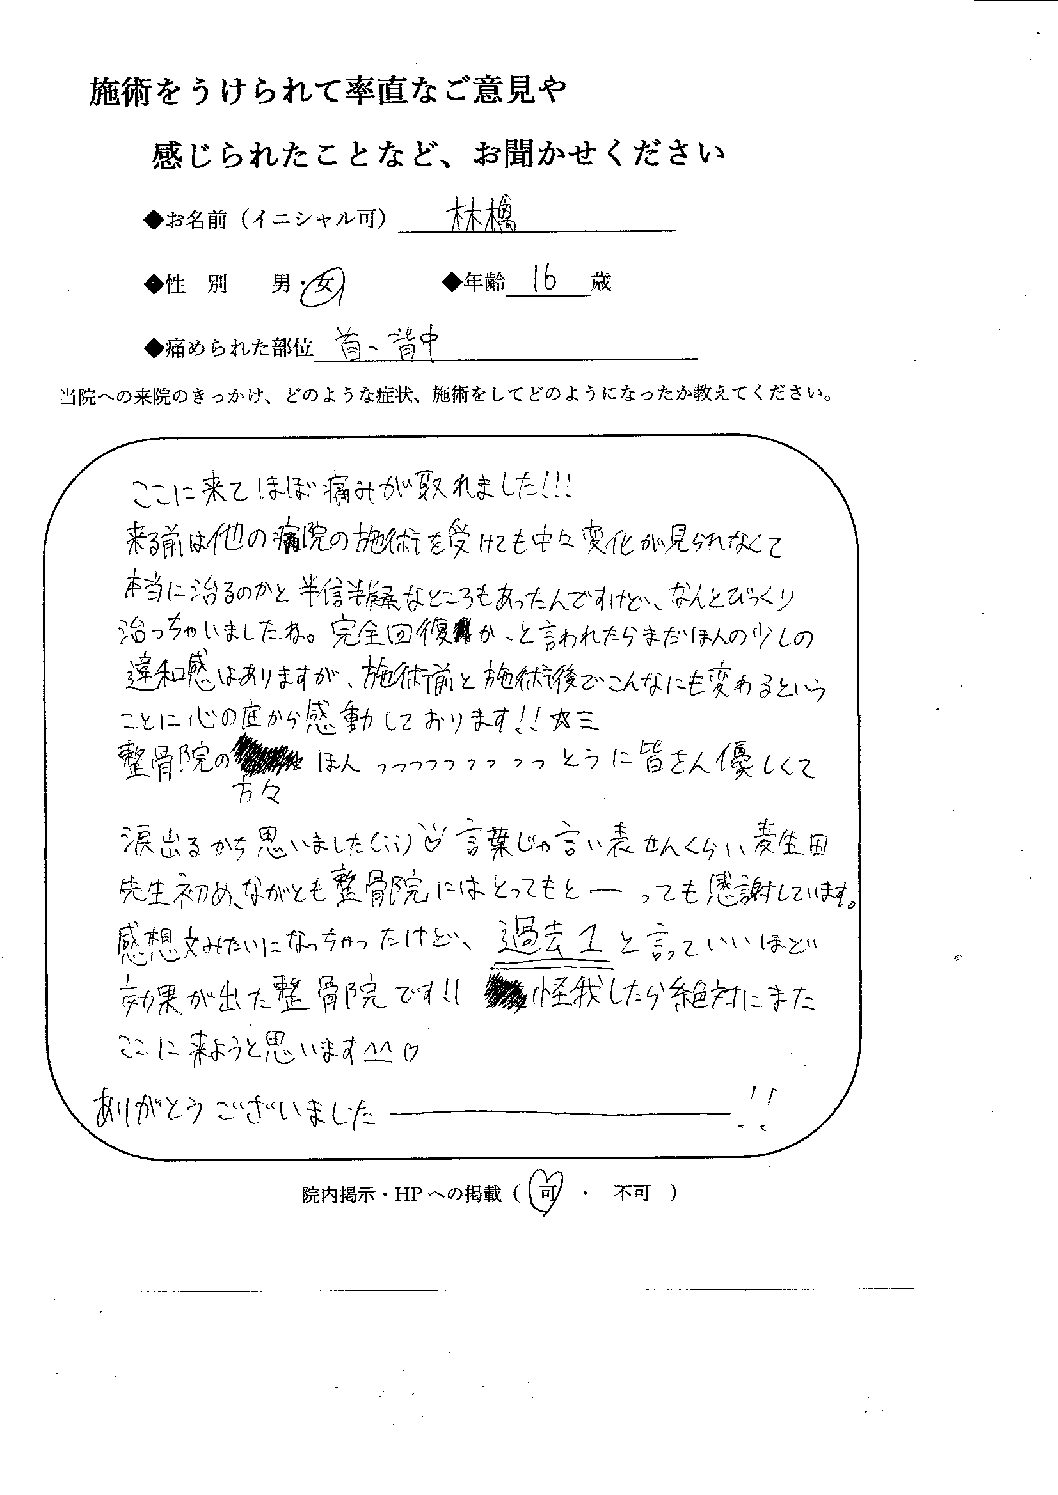 施術をうけられて率直なご意見や
感じられたことなど、お聞かせください
◆お名前（イニシャル可） 林橋
◆性 別 男・女 ◆年齢 16 歳
◆痛められた部位 首、背中
当院への来院のきっかけ、どのような症状、施術をしてどのようになったか教えてください。
ここに来てほぼ痛みが取れました!!!
来る前は他の病院の施術を受けても中々変化が見られなくて
本当に治るのかと半信半疑なところもあったんですけど、なんとびっくり
治っちゃいましたね。完全回復か、と言われたらまだほんの少しの
違和感はありますが、施術前と施術後でこんなにも変わるという
ことに心の底から感動しております!! ☆三
整骨院の ほんっっっっっっっっっとうに皆さん優しくて
方々
涙出るかと思いました(;;)♡ 言葉じゃ言い表せんくらい、麦生田
先生初め、ながとも整骨院にはとってもとーっても感謝しています。
感想文みたいになっちゃったけど、過去1と言っていいほど
効果が出た整骨院です!! 怪我したら絶対にまた
ここに来ようと思います^^♡
ありがとうございました――!!
院内掲示・HPへの掲載（ 可 ・ 不可 ）